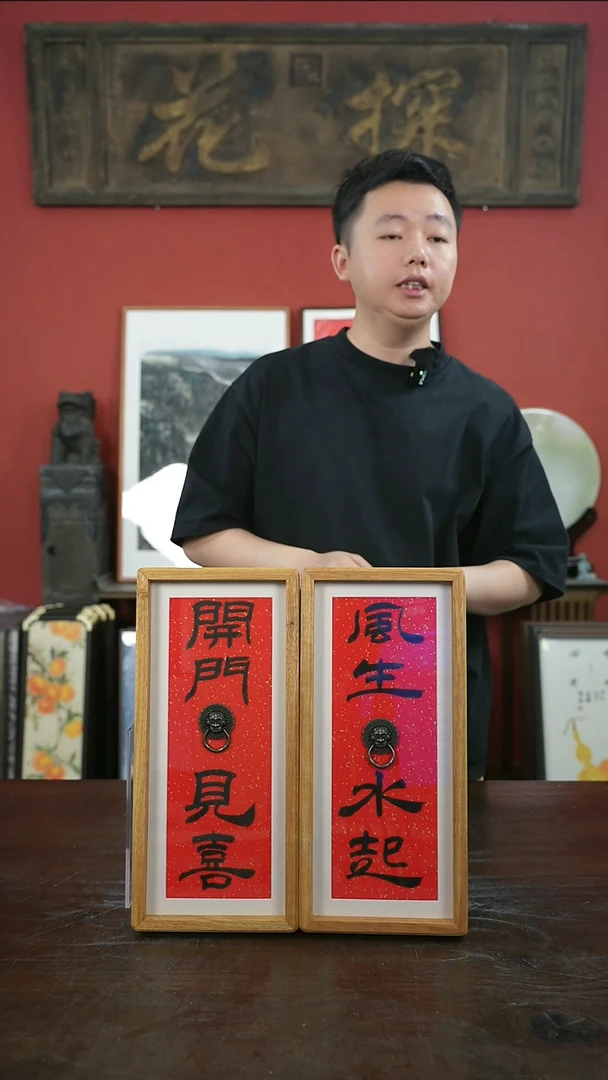 探花
開門見喜
風生水起